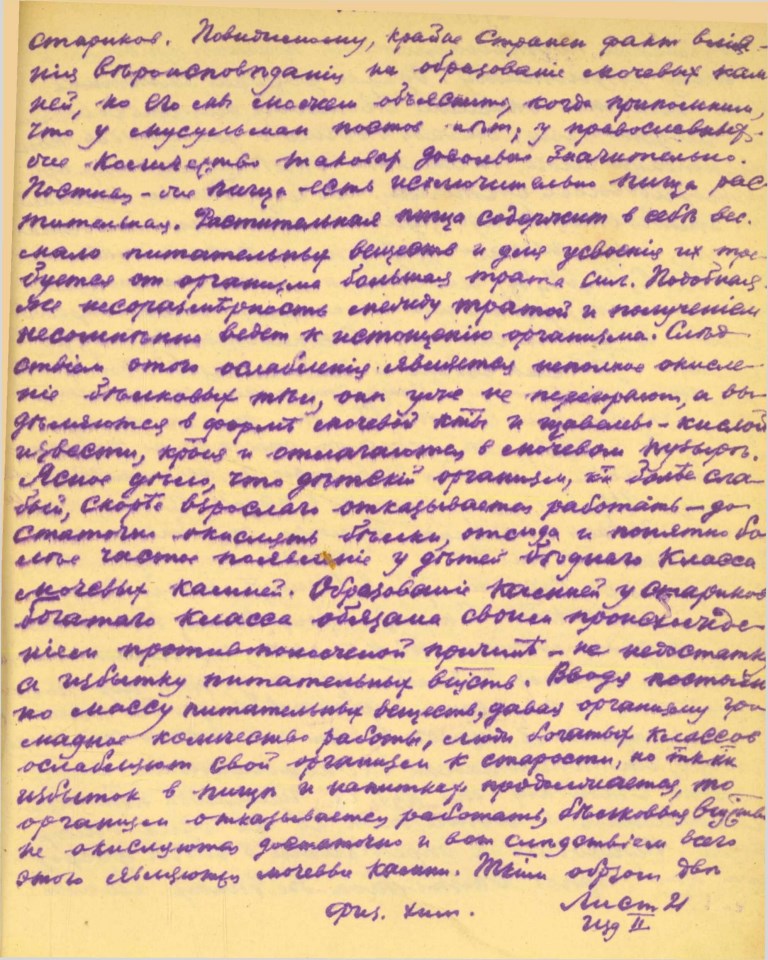 стариковъ. Повидимому, крайне страненъ фактъ влія-
нія вѣроисповѣданія на образованіе мочевыхъ кам
ней, но его мы можемъ объяснить, когда припомнимъ,
что у мусульман постов нѣт; у православных-
же количество таковых довольно значительно.
Постная-же пища есть исключительно пища рас
тительная. Растительная пища содержит в себѣ вес.
мало питательных веществ и для усвоенія их тре
буется от организма большая трата сил. Подобная
же несоразмѣрность между тратой и полученіем
несомнѣнно ведет к истощенію организма. Слѣд
ствіем этого ослабленія является неполное окисле
ніе бѣлковых тѣл, они уже не перегорают, а вы
дѣляются в формѣ мочевой к-ты и щавелево-кислой
извести, кр̄ыя и отлагаются в мочевом пузырѣ.
Ясное дѣло, что дѣтскій организм, кк болѣе сла
бый, скорѣе взрослаго отказывается работать - до
статочно окислять бѣлки, отсюда и понятно бо
лѣе частое появленіе у дѣтей бѣднаго класса
мочевых камней. Образованіе камней у стариков
богатаго класса обязана своим происхожде-
ніем противоположной причинѣ - не недостатк
а избытку питательных вещ̄ств. Вводя постоян
но массу питательных веществ, давая организму гро
мадное количество работы, люди богатых классов
ослабляют свой организм к старости, но т̄к к̄к
избыток в пищѣ и напитках продолжается, то
организм отказывается работать, бѣлковыя вещ̄ства
не окисляются достаточно и вот слѣдствіем всего
этого являются мочевые камни. Т̄кім образом двѣ
Физ. хим. Лист 21
Изд II